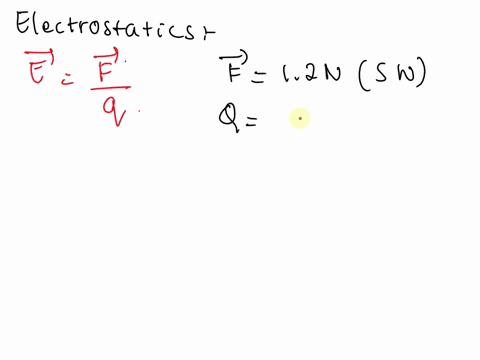 Electrostatics:-
E⃗ = F⃗ / q
F⃗ = 1.2N (SW)
Q =